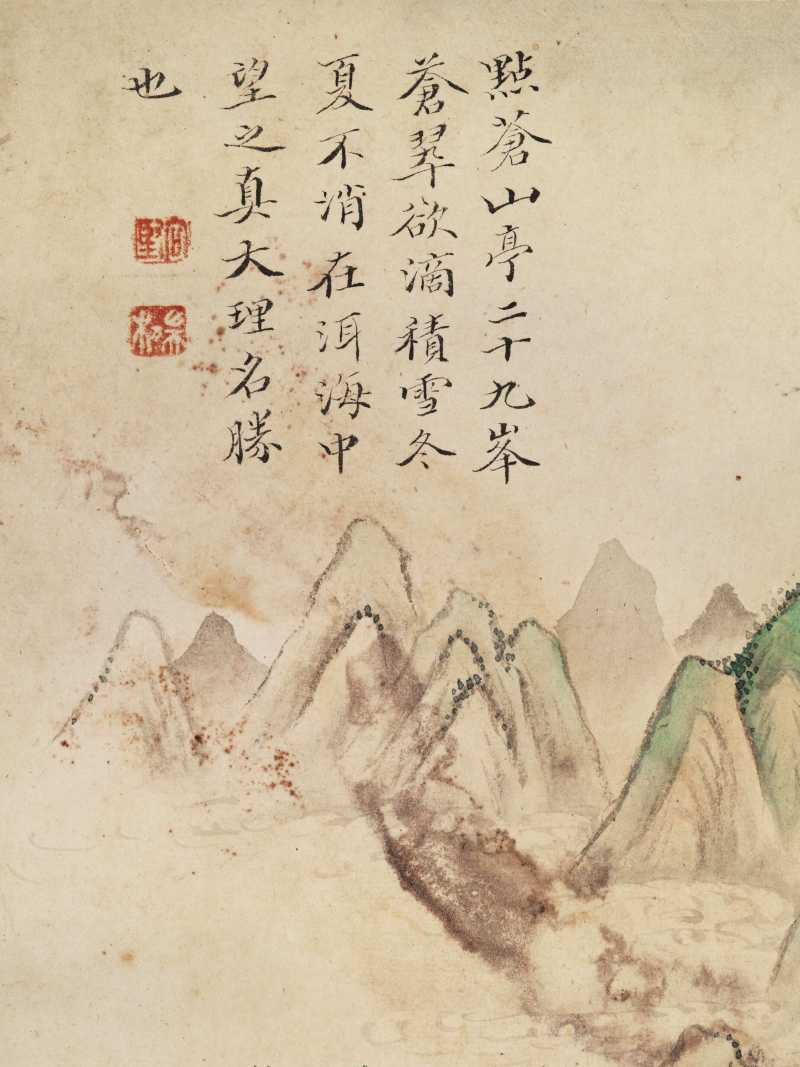 點蒼山亭二十九峯
蒼翠欲滴積雪冬
夏不消在洱海中
望之真大理名勝
也